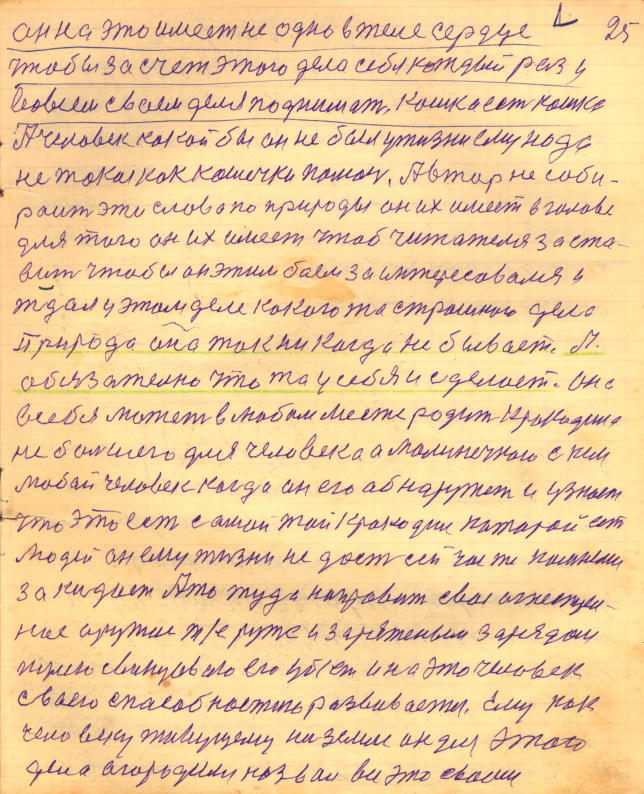 25
он на это имеет не одно в теле сердце
чтобы за счет этого дела себя каждый раз у
совсем своем деля поднимат, кошка ест кошка
А человек какой бы он не был у жизни ему надо
не такая как кошечки помоч. Автор не соби-
раит эти слова по природы он их имеет в голове
для того он их имеет чтоб читателя заста-
вит чтобы он этим баем заинтересовался и
ждал у этом деле какого та страшного дела
Природа она так никогда не бывает. А.
обязателно что та у себя и сделает. она
в себя может в любом месте родит крокодила
не болшего для человека а малинечкого с кем
любай человек когда он его обнаружет и узнает
что это ест самай тай крокодил каторай ест
людей он ему жизни не даст сей час же камнями
закидает А то туда направит свае огнестрел-
ное оружие т/е ружё и заряженым зарядом
пулею свинцовою его убъет и на это человек
своею способностю развивается. Ему как
человеку живущему на земли он для этого
дела огородили назвал все это своим